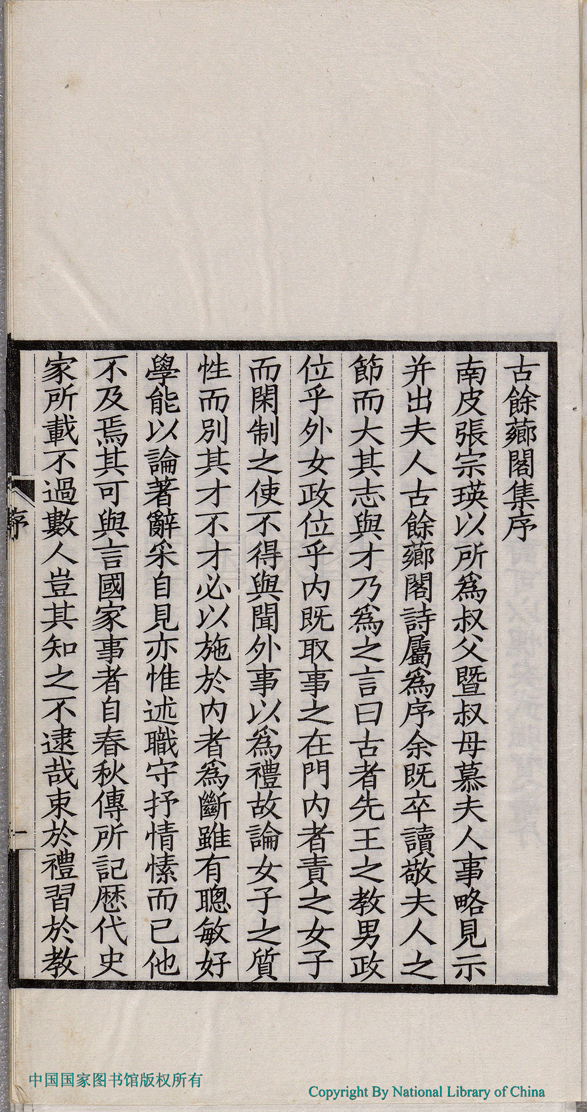 古餘薌閣集序
南皮張宗瑛以所爲叔父暨叔母慕夫人事略見示
并出夫人古餘薌閣詩屬爲序余既卒讀敬夫人之
節而大其志與才乃爲之言曰古者先王之教男政
位乎外女政位乎內既取事之在門內者責之女子
而閑制之使不得與聞外事以爲禮故論女子之質
性而別其才不才必以施於內者爲斷雖有聰敏好
學能以論著辭采自見亦惟述職守抒情愫而已他
不及焉其可與言國家事者自春秋傳所記歷代史
家所載不過數人豈其知之不逮哉束於禮習於教
序
一
中国国家图书馆版权所有
Copyright By National Library of China